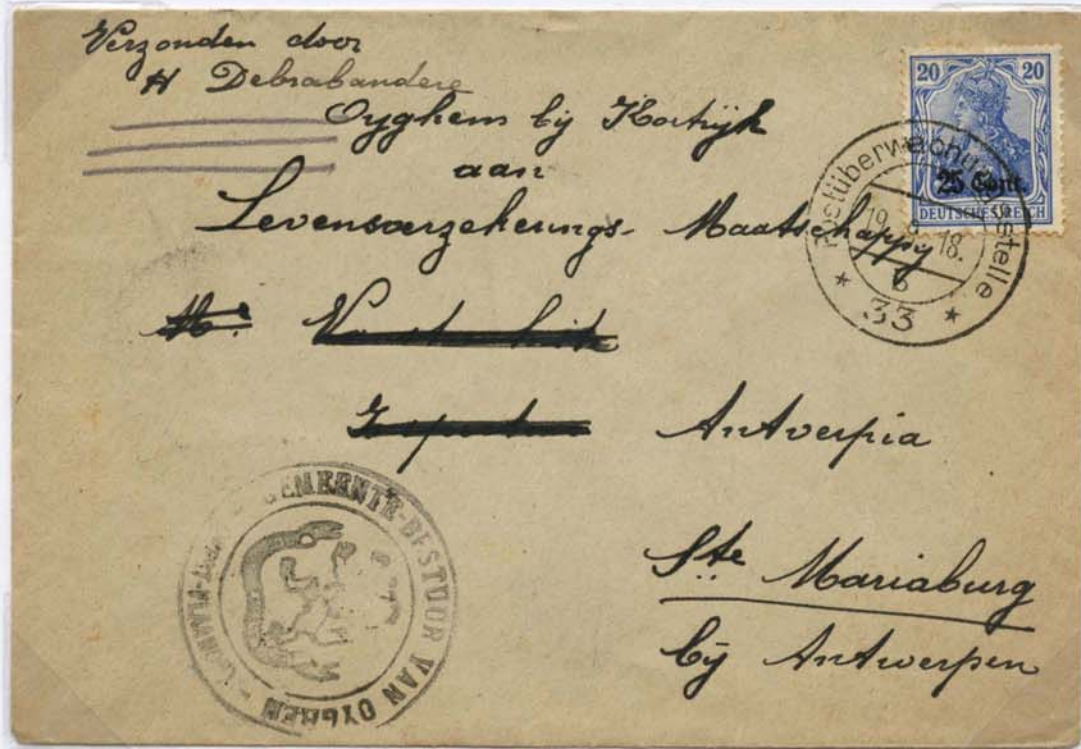 Verzonden door
H Debrabandere
Oyghem bij Kortrijk
aan
Levensverzekerings- Maatschappij
Mr.
Antverpia
Ste Mariaburg
bij Antwerpen
20 20
25 Cent.
DEUTSCHES REICH
Postüberwachungsstelle
19. 18.
b
* 33 *
GEMEENTE-BESTUUR VAN OYGHEM